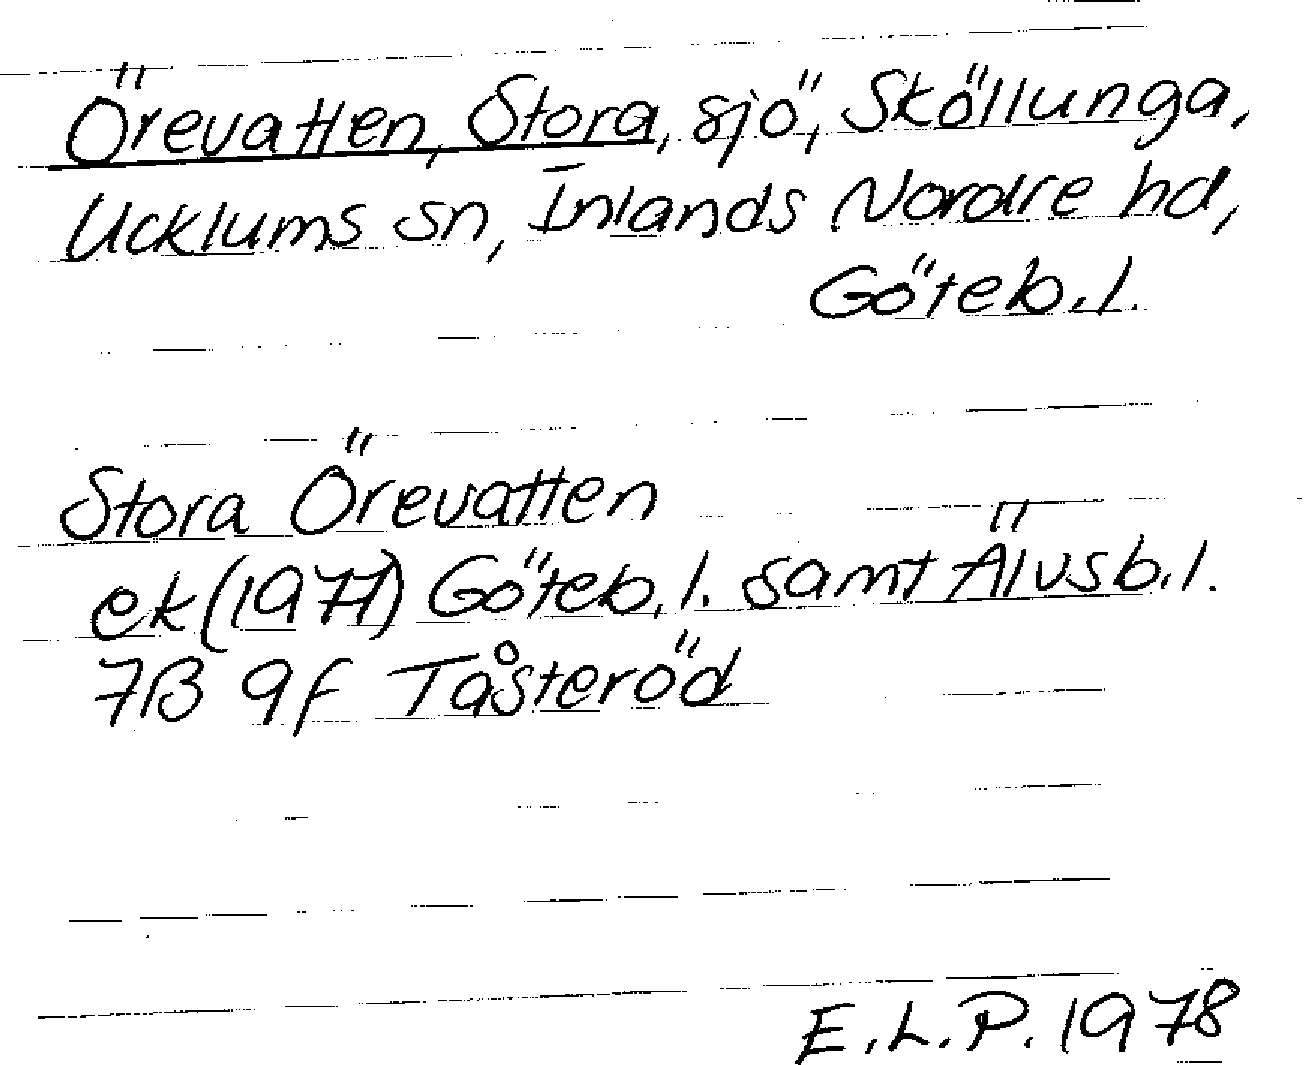 Örevatten, Stora, sjö, Sköllunga,
Ucklums sn, Inlands Nordre hd,
Göteb.l.
Stora Örevatten
ek (1977) Göteb.l. samt Älvsb.l.
7B 9f Tåsteröd
E.L.P. 1978